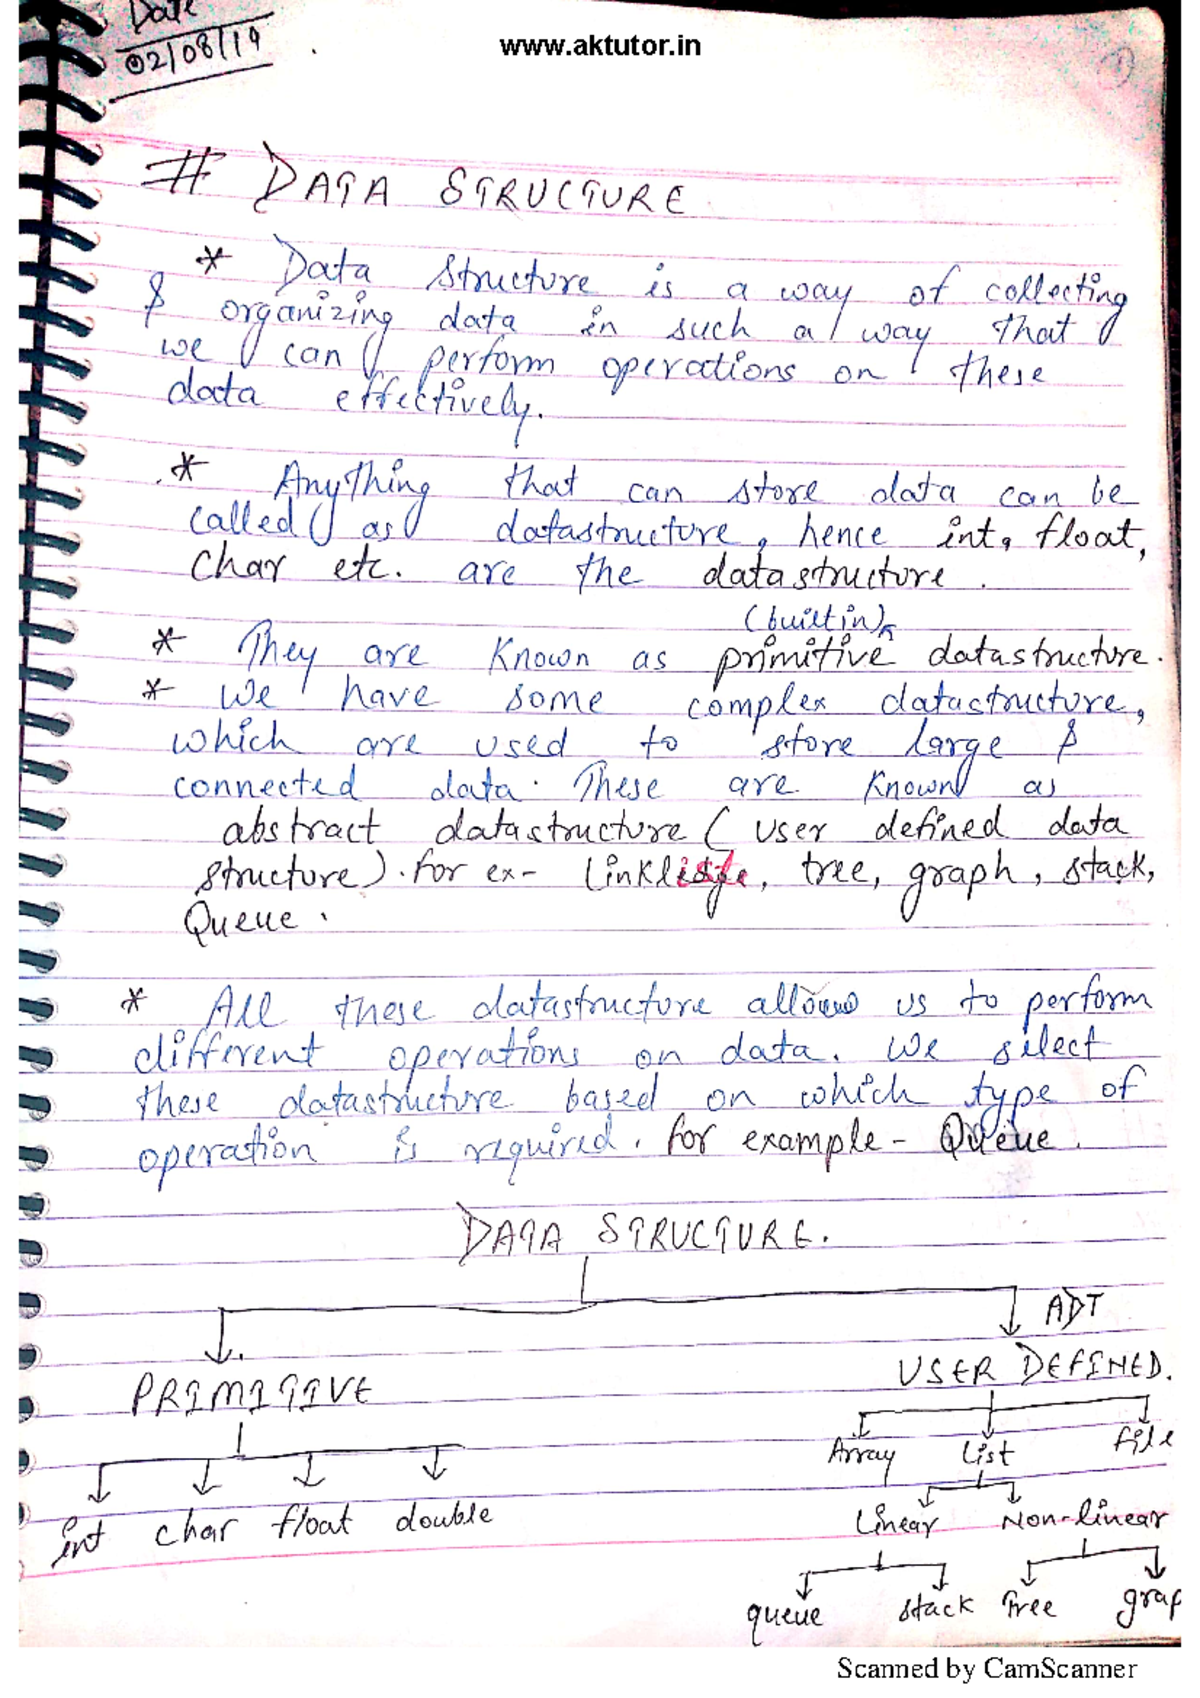 Date
02/08/19
www.aktutor.in
1
# DATA STRUCTURE
* Data structure is a way of collecting
& organizing data in such a way that
we can perform operations on these
data effectively.
* Anything that can store data can be
called as datastructure, hence int, float,
char etc. are the datastructure.
(builtin)
* They are known as primitive datastructure.
* We have some complex datastructure,
which are used to store large &
connected data. These are known as
abstract datastructure (user defined data
structure). For ex- tree, graph, stack,
Queue.
* All these datastructure allows us to perform
different operations on data. We select
these datastructure based on which type of
operation is required. for example - Queue.
DATA STRUCTURE.
ADT
PRIMITIVE USER DEFINED.
Array List file
int char float double
Linear Non-linear
queue stack Tree grap
Scanned by CamScanner